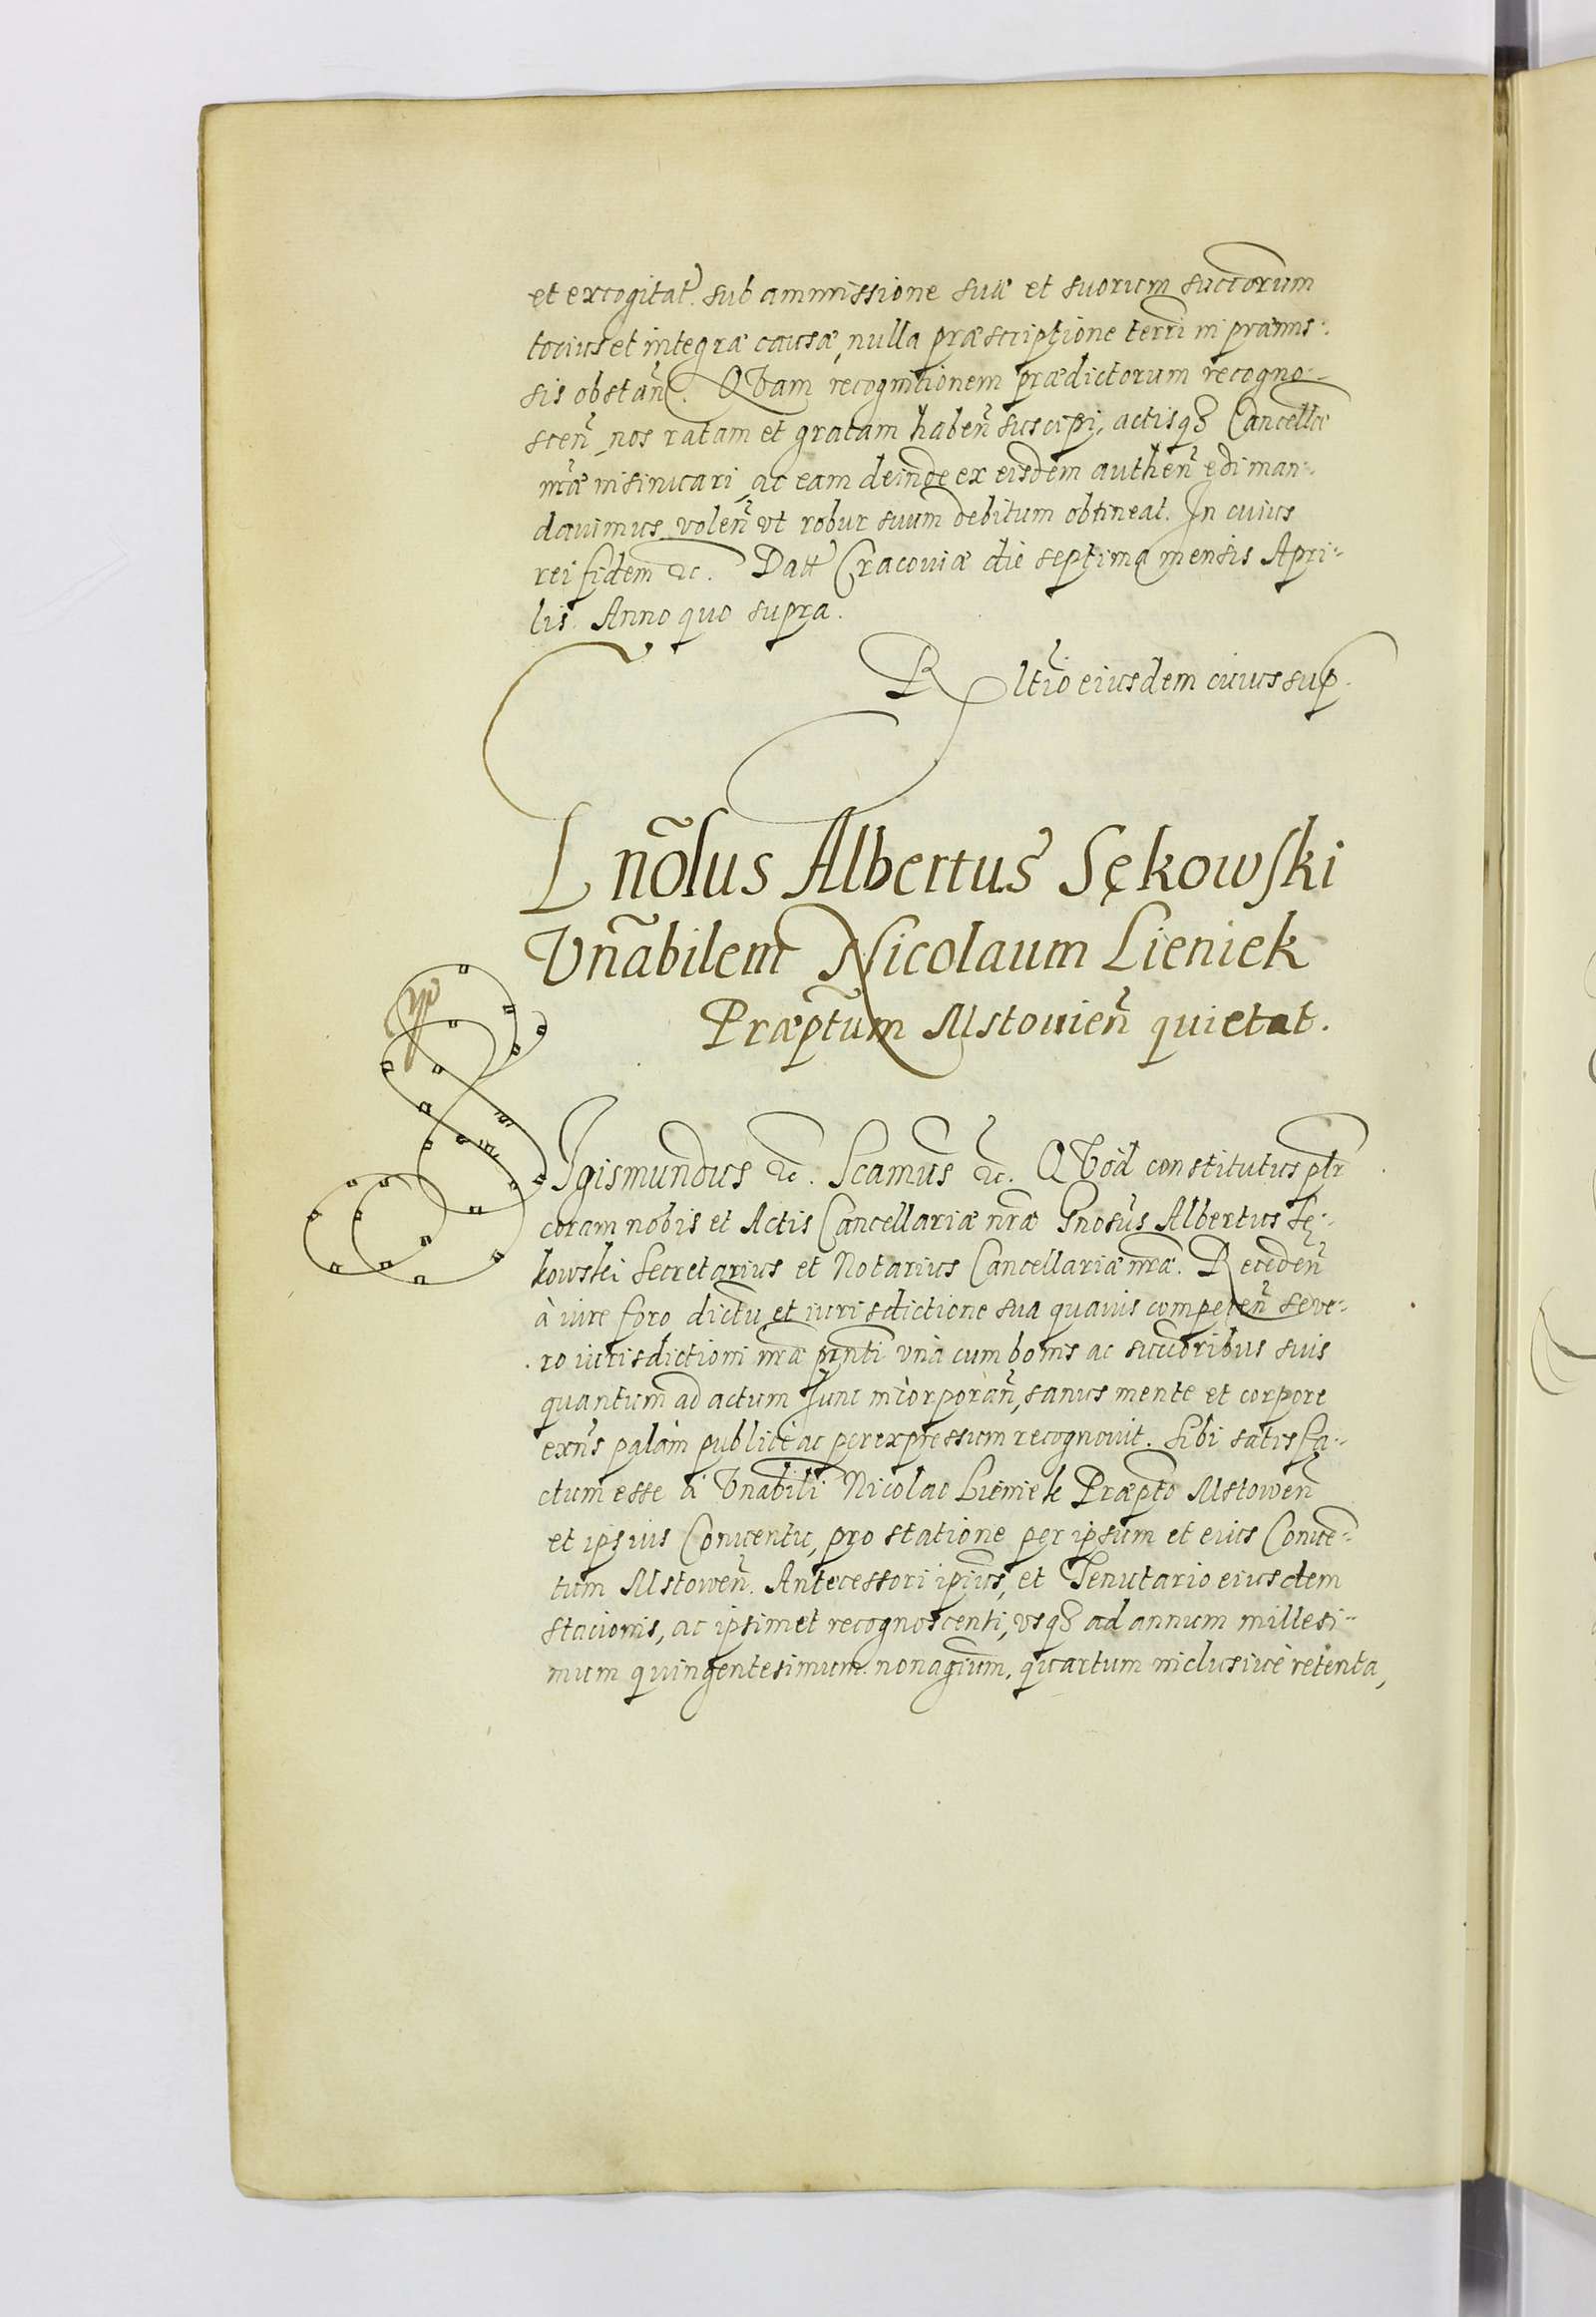 et excogitat. sub ammissione suæ et suorum succorum
tocius et integræ causæ, nulla præscriptione terri in præmis:
sis obstan̄. QVam recognitionem prædictorum recogno:
scen̄ nos ratam et gratam haben̄ suscipi, actisq3 Cancellæ
nr̄æ insinuari, ac eam deinde ex eisdem authen̄ edi man:
dauimus volen̄ vt robur suum debitum obtineat. In cuius
rei fidem etc. Datt Cracouiæ die septima mensis Apri:
lis Anno quo supra.
Rltīo eiusdem cuius sup.
G nōlus Albertus Sękowski
Vn̄abilem Nicolaum Lieniek
Præp̄tum Mstouien̄ quietat.
SIgismundus etc. Scamus etc. QVod constitutus pl̄r
coram nobis et Actis Cancellariæ nr̄æ Gnosus Albertus Sę:
kowski Secretarius et Notarius Cancellariæ nr̄æ. Receden̄
à iure foro dictu et iurisdictione sua quauis competen̄ seve:
ro iurisdictioni nr̄æ pn̄ti vnà cum bonis ac succoribus suis
quantum ad actum hunc incorporan̄, sanus mente et corpore
exn̄s palàm publicè ac per expressum recognouit. Sibi satisfa:
ctum esse à Vn̄abili Nicolao Lieniek Præpto Mstowen̄
et ipsius Conuentu, pro statione per ipsum et eius Conue:
tum Mstowen̄. Antecessori ipius, et Tenutario eiusdem
stacionis, ac ipsimet recognoscenti, vsq3 ad annum millesi:
mum quingentesimum nonagium, quartum inclusiuè retenta,